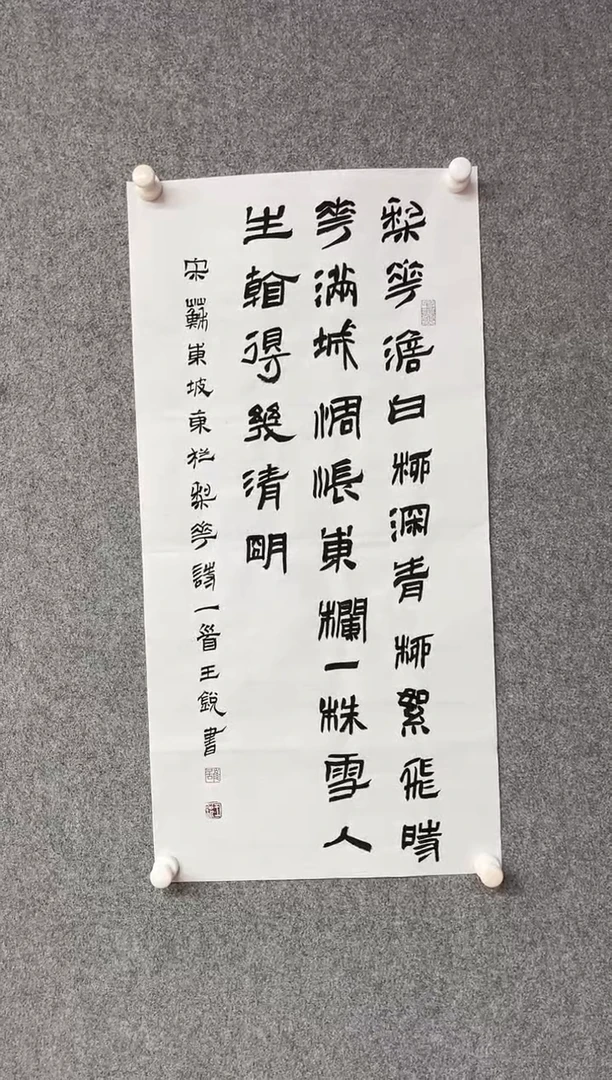 梨花澹白柳深青柳絮飛時
花滿城惆悵東欄一株雪人
生看得幾清明
宋蘇東坡東栏梨花詩一首王銳書